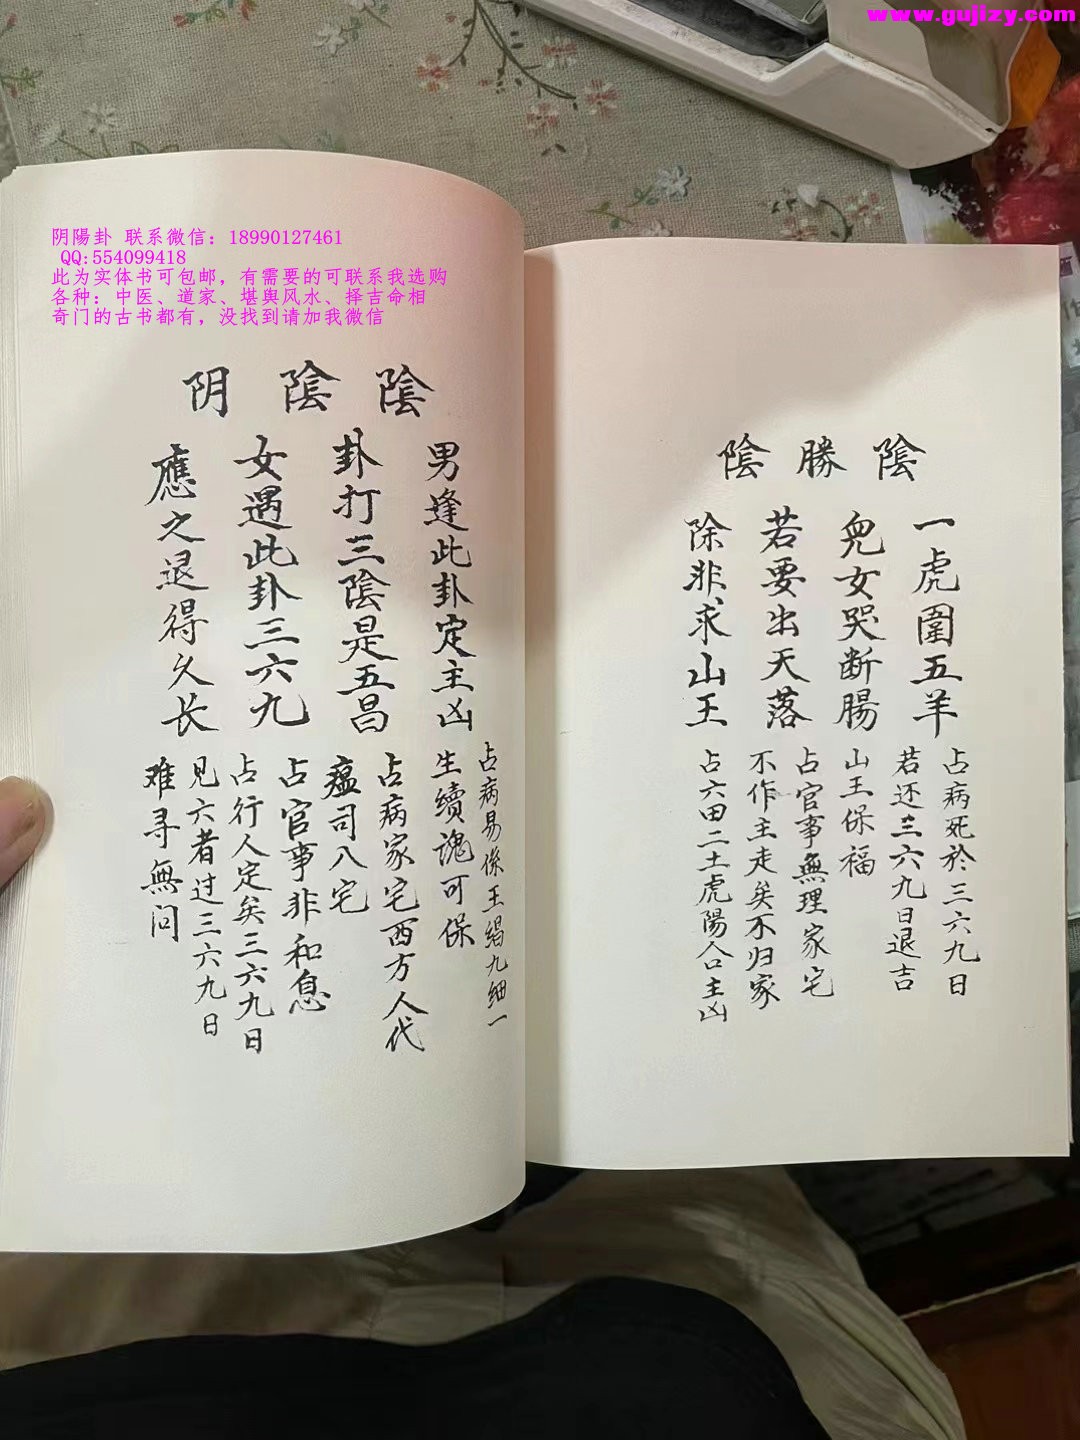 www.gujizy.com
阴陽卦 联系微信：18990127461
QQ:554099418
此为实体书可包邮，有需要的可联系我选购
各种：中医、道家、堪舆风水、择吉命相
奇门的古书都有，没找到请加我微信
陰勝陰
一虎圍五羊
兒女哭断腸
若要出天落
除非求山王
占病死於三六九日
若还三六九日退吉
山王保福
占官事無理家宅
不作主走矣不归家
占六田二土虎陽合主凶
陰陰阴
男逢此卦定主凶
卦打三陰是五昌
女遇此卦三六九
應之退得久长
占病易係王绢九细一
生續魂可保
占病家宅西方人代
瘟司八宅
占官事非和息
占行人定矣三六九日
见六者过三六九日
难寻無问